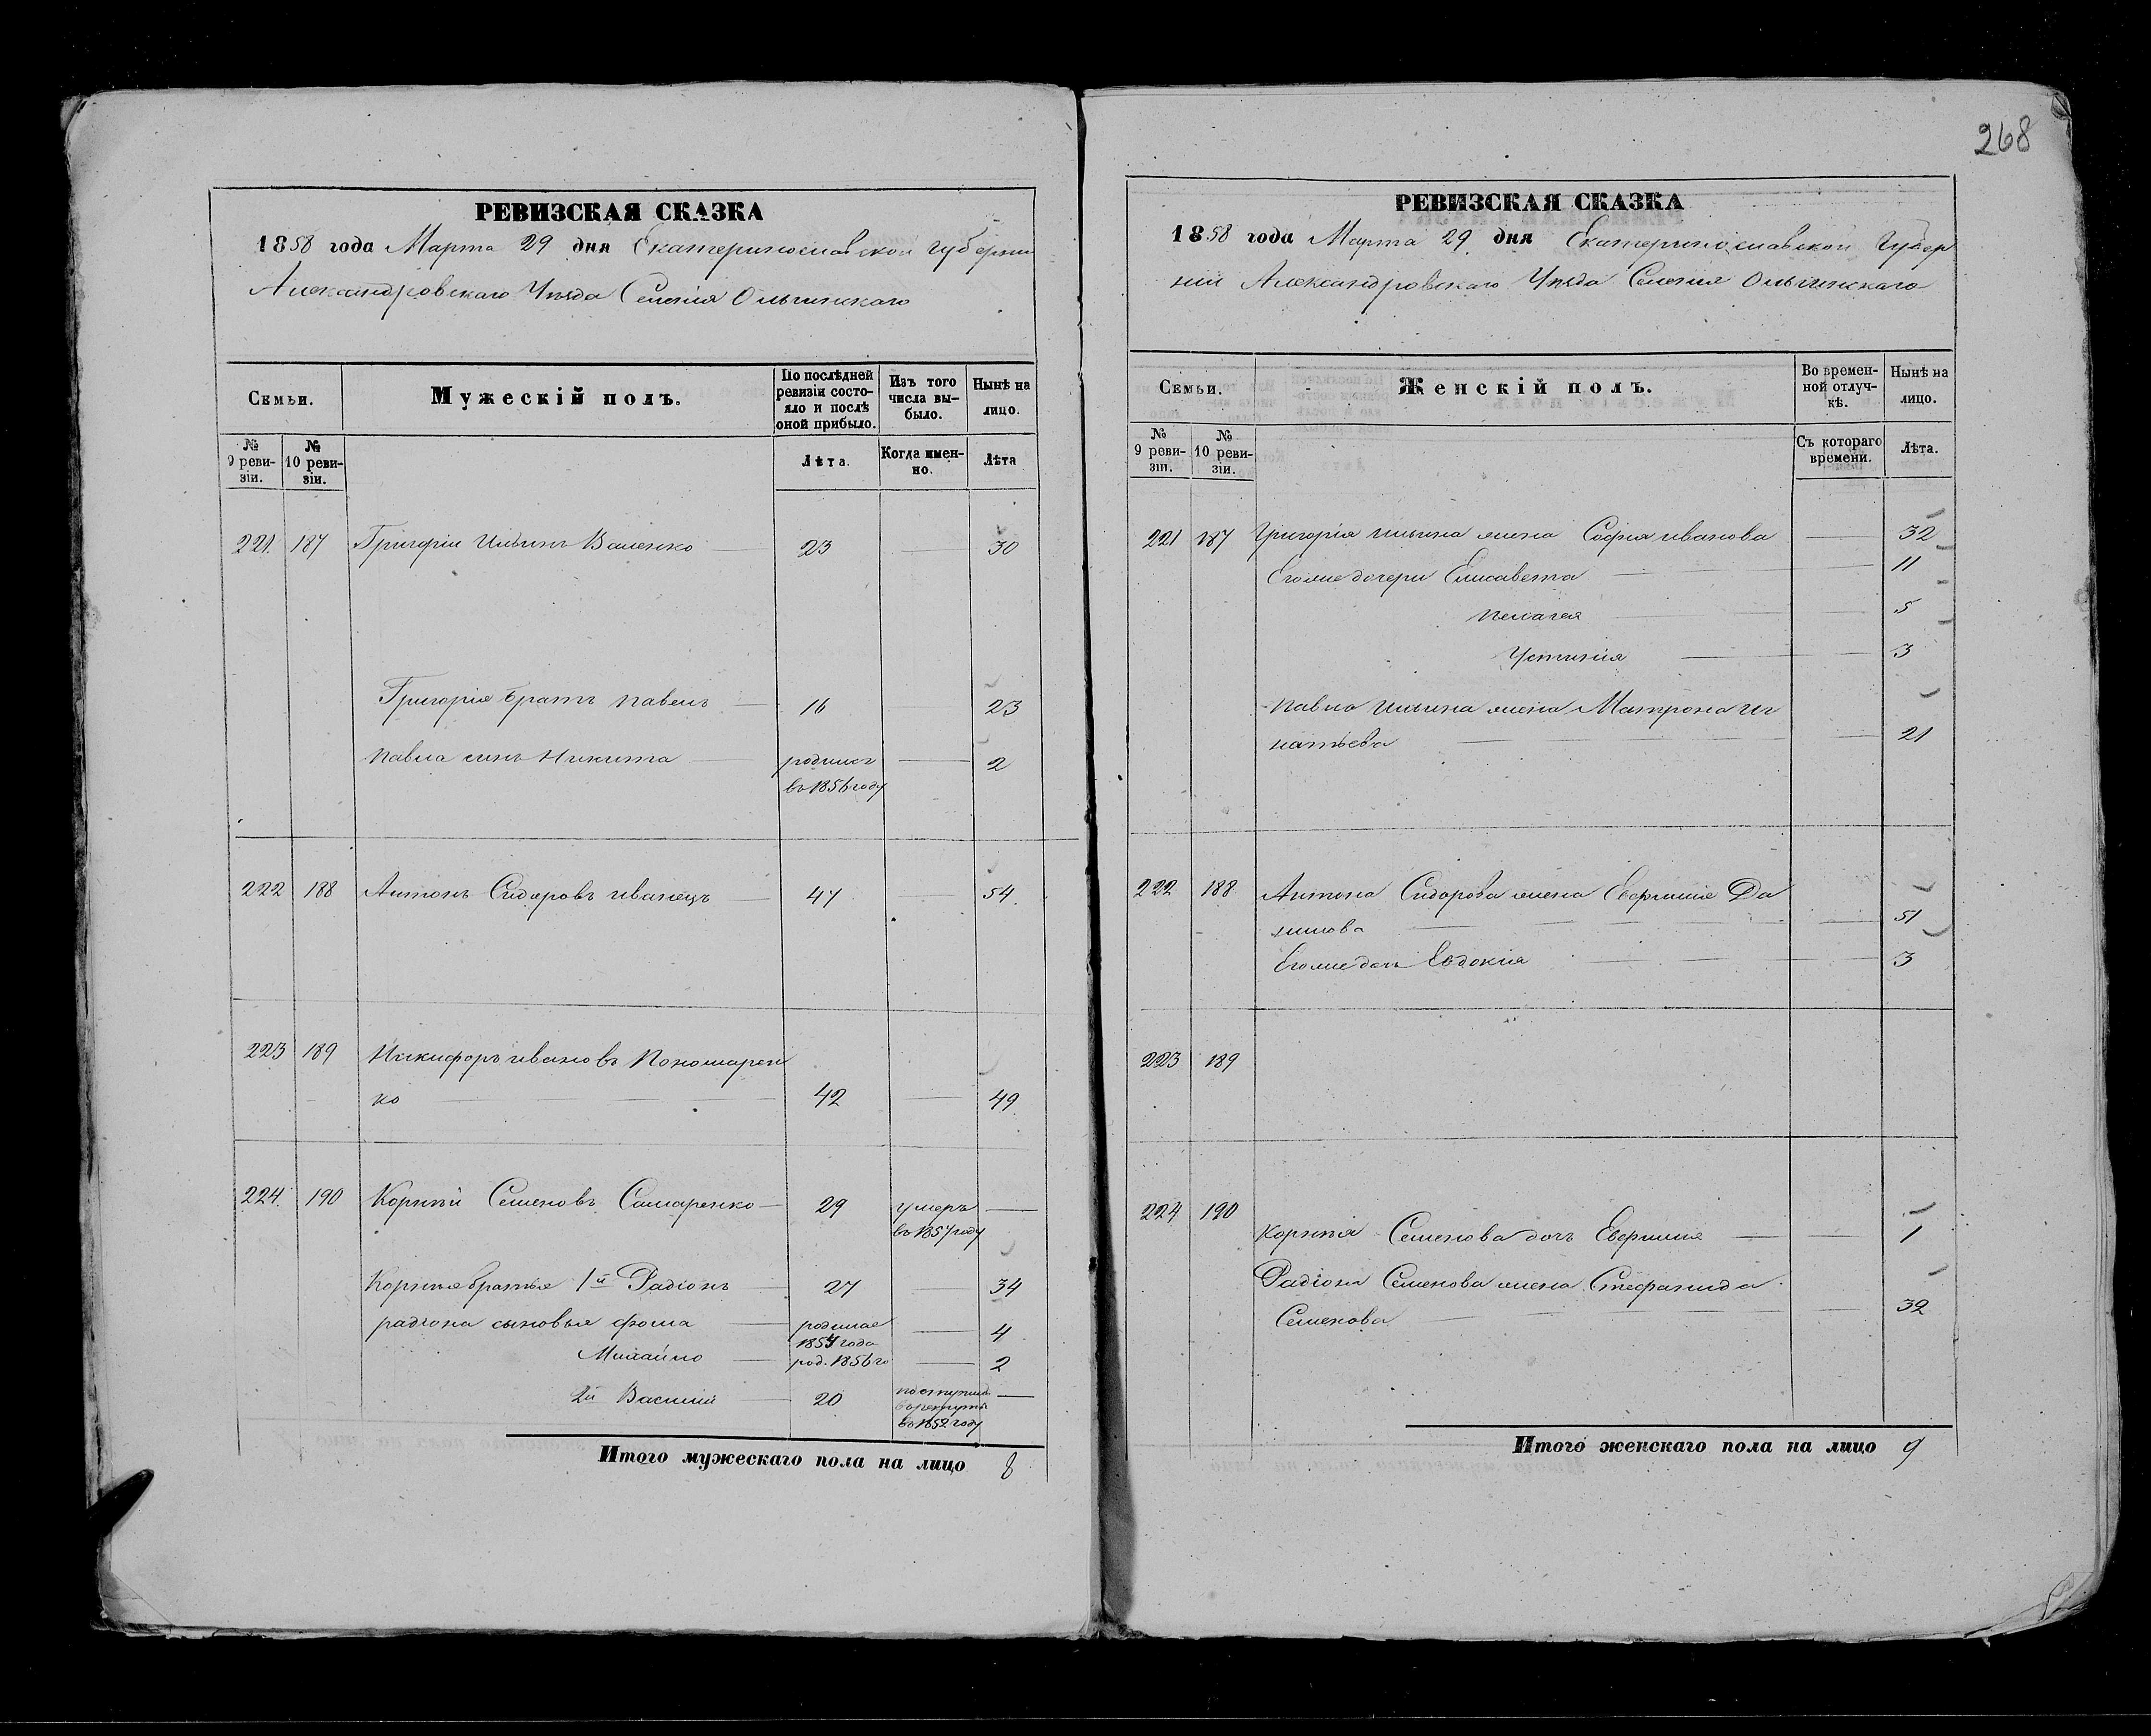 268
РЕВИЗСКАЯ СКАЗКА
1858 года Марта 29 дня Екатеринославской губернии
Александровскаго Уѣзда Селенія Ольгинскаго
Семьи.
Мужескій полъ.
По послѣдней ревизіи состояло и послѣ оной прибыло.
Изъ того числа выбыло.
Нынѣ на лицо.
№ 9 ревизіи.
№ 10 ревизіи.
Лѣта.
Когда именно.
Лѣта
221. 187 Григорій Ильинъ 23 30
Григорія братъ Павелъ 16 23
Павла сынъ Никита родился 2
въ 1856 году
222 188 Антонъ Сидоровъ Иванецъ 47 54.
223 189 Никифоръ Ивановъ Пономарен
ко 42 49
224. 190 Корнѣй Семеновъ Самаренко 29 умеръ
въ 1857 году
Корнѣя братья 1й Радіонъ 27 34
Радіона сыновья Фома родился 4
1854 года
Михайло род. 1856 го 2
2й Василій 20 поступилъ
въ рекруты
въ 1852 году
Итого мужескаго пола на лицо 8
РЕВИЗСКАЯ СКАЗКА
1858 года Марта 29 дня Екатеринославской Губер
ніи Александровскаго Уѣзда Селенія Ольгинскаго
Семьи.
Женскій полъ.
Во временной отлучкѣ.
Нынѣ на лицо.
№ 9 ревизіи.
№ 10 ревизіи.
Съ котораго времени.
Лѣта.
221 187 Григорія Ильина жена Софія Иванова 32
Его же дочери Елисавета 11
Пелагея 5
Устинія 3
Павла Ильина жена Матрона Иг
натьева 21
222 188 Антона Сидорова жена Евфимія Да
нилова 51
Его же дочь Евдокія 3
223 189
224 190
Корнѣя Семенова дочь Евфимія 1
Радіона Семенова жена Стефанида
Семенова 32
Итого женскаго пола на лицо 9